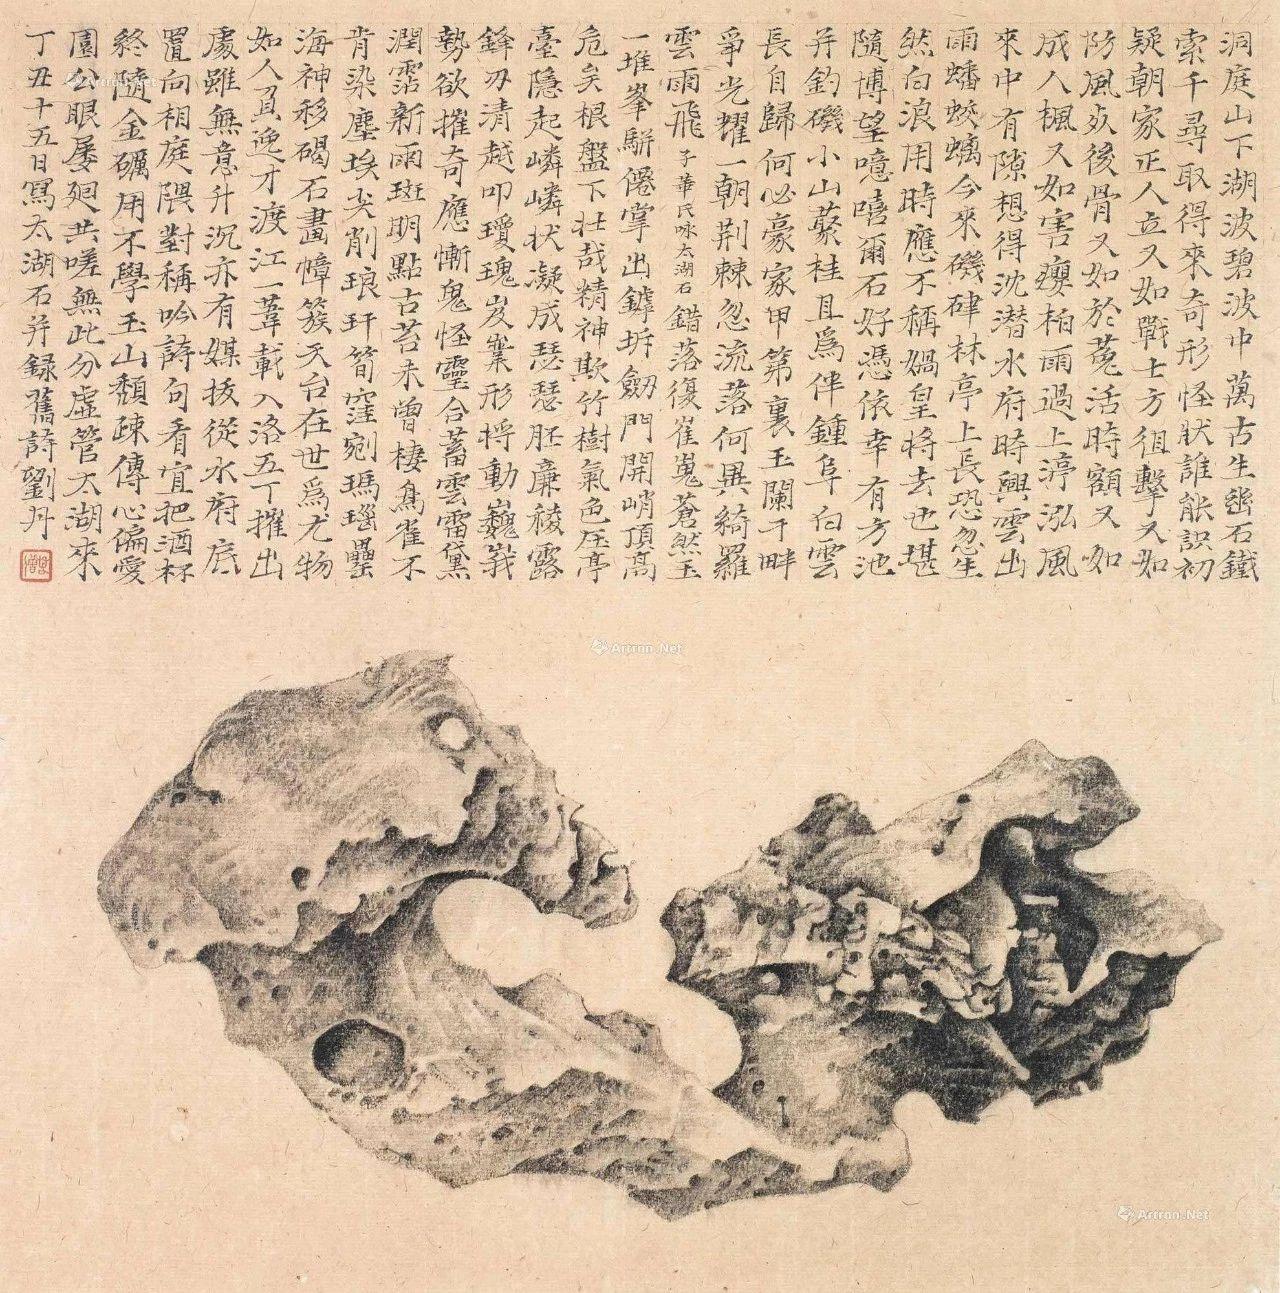 洞庭山下湖波碧波中萬古生幽石鐵
索千尋取得來奇形怪狀誰能識初
疑朝家正人立又如戰士方狙擊又如
防風死後骨又如於菟活時額又如
成人楓又如害癭柏雨過上渟泓風
來中有隙想得沈潛水府時興雲出
雨蟠蛟螭今來磯硉林亭上長恐忽生
然白浪用時應不稱媧皇將去也堪
隨博望噫嘻爾石好憑依幸有方池
并釣磯小山藂桂且爲伴鍾阜白雲
長自歸何必豪家甲第裏玉闌干畔
爭光耀一朝荆棘忽流落何異綺羅
雲雨飛 子華氏咏太湖石 錯落復崔嵬蒼然玉
一堆峯駢僊掌出罅坼劒門開峭頂高
危矣根盤下壮哉精神欺竹樹氣色压亭
臺隱起嶙嶙状凝成瑟瑟胚廉稜露
鋒刃清越叩瓊瑰岌嶪形將動巍峩
勢欲摧奇應慚鬼怪靈合蓄雲雷黛
潤霑新雨斑明點古苔未曾棲鳥雀不
肯染塵埃尖削琅玕筍窪剜瑪瑙罍
海神移碣石畫幛簇天台在世爲尤物
如人負逸才渡江一葦載入洛五丁摧出
處雖無意升沉亦有媒拔從水府底
置向相庭隈對稱吟詩句看宜把酒杯
終隨金礪用不學玉山頹疎傳心偏愛
園公眼屡廻共嗟無此分虚管太湖來
丁丑十五日寫太湖石并録舊詩劉丹
Artron.Net
Artron.Net